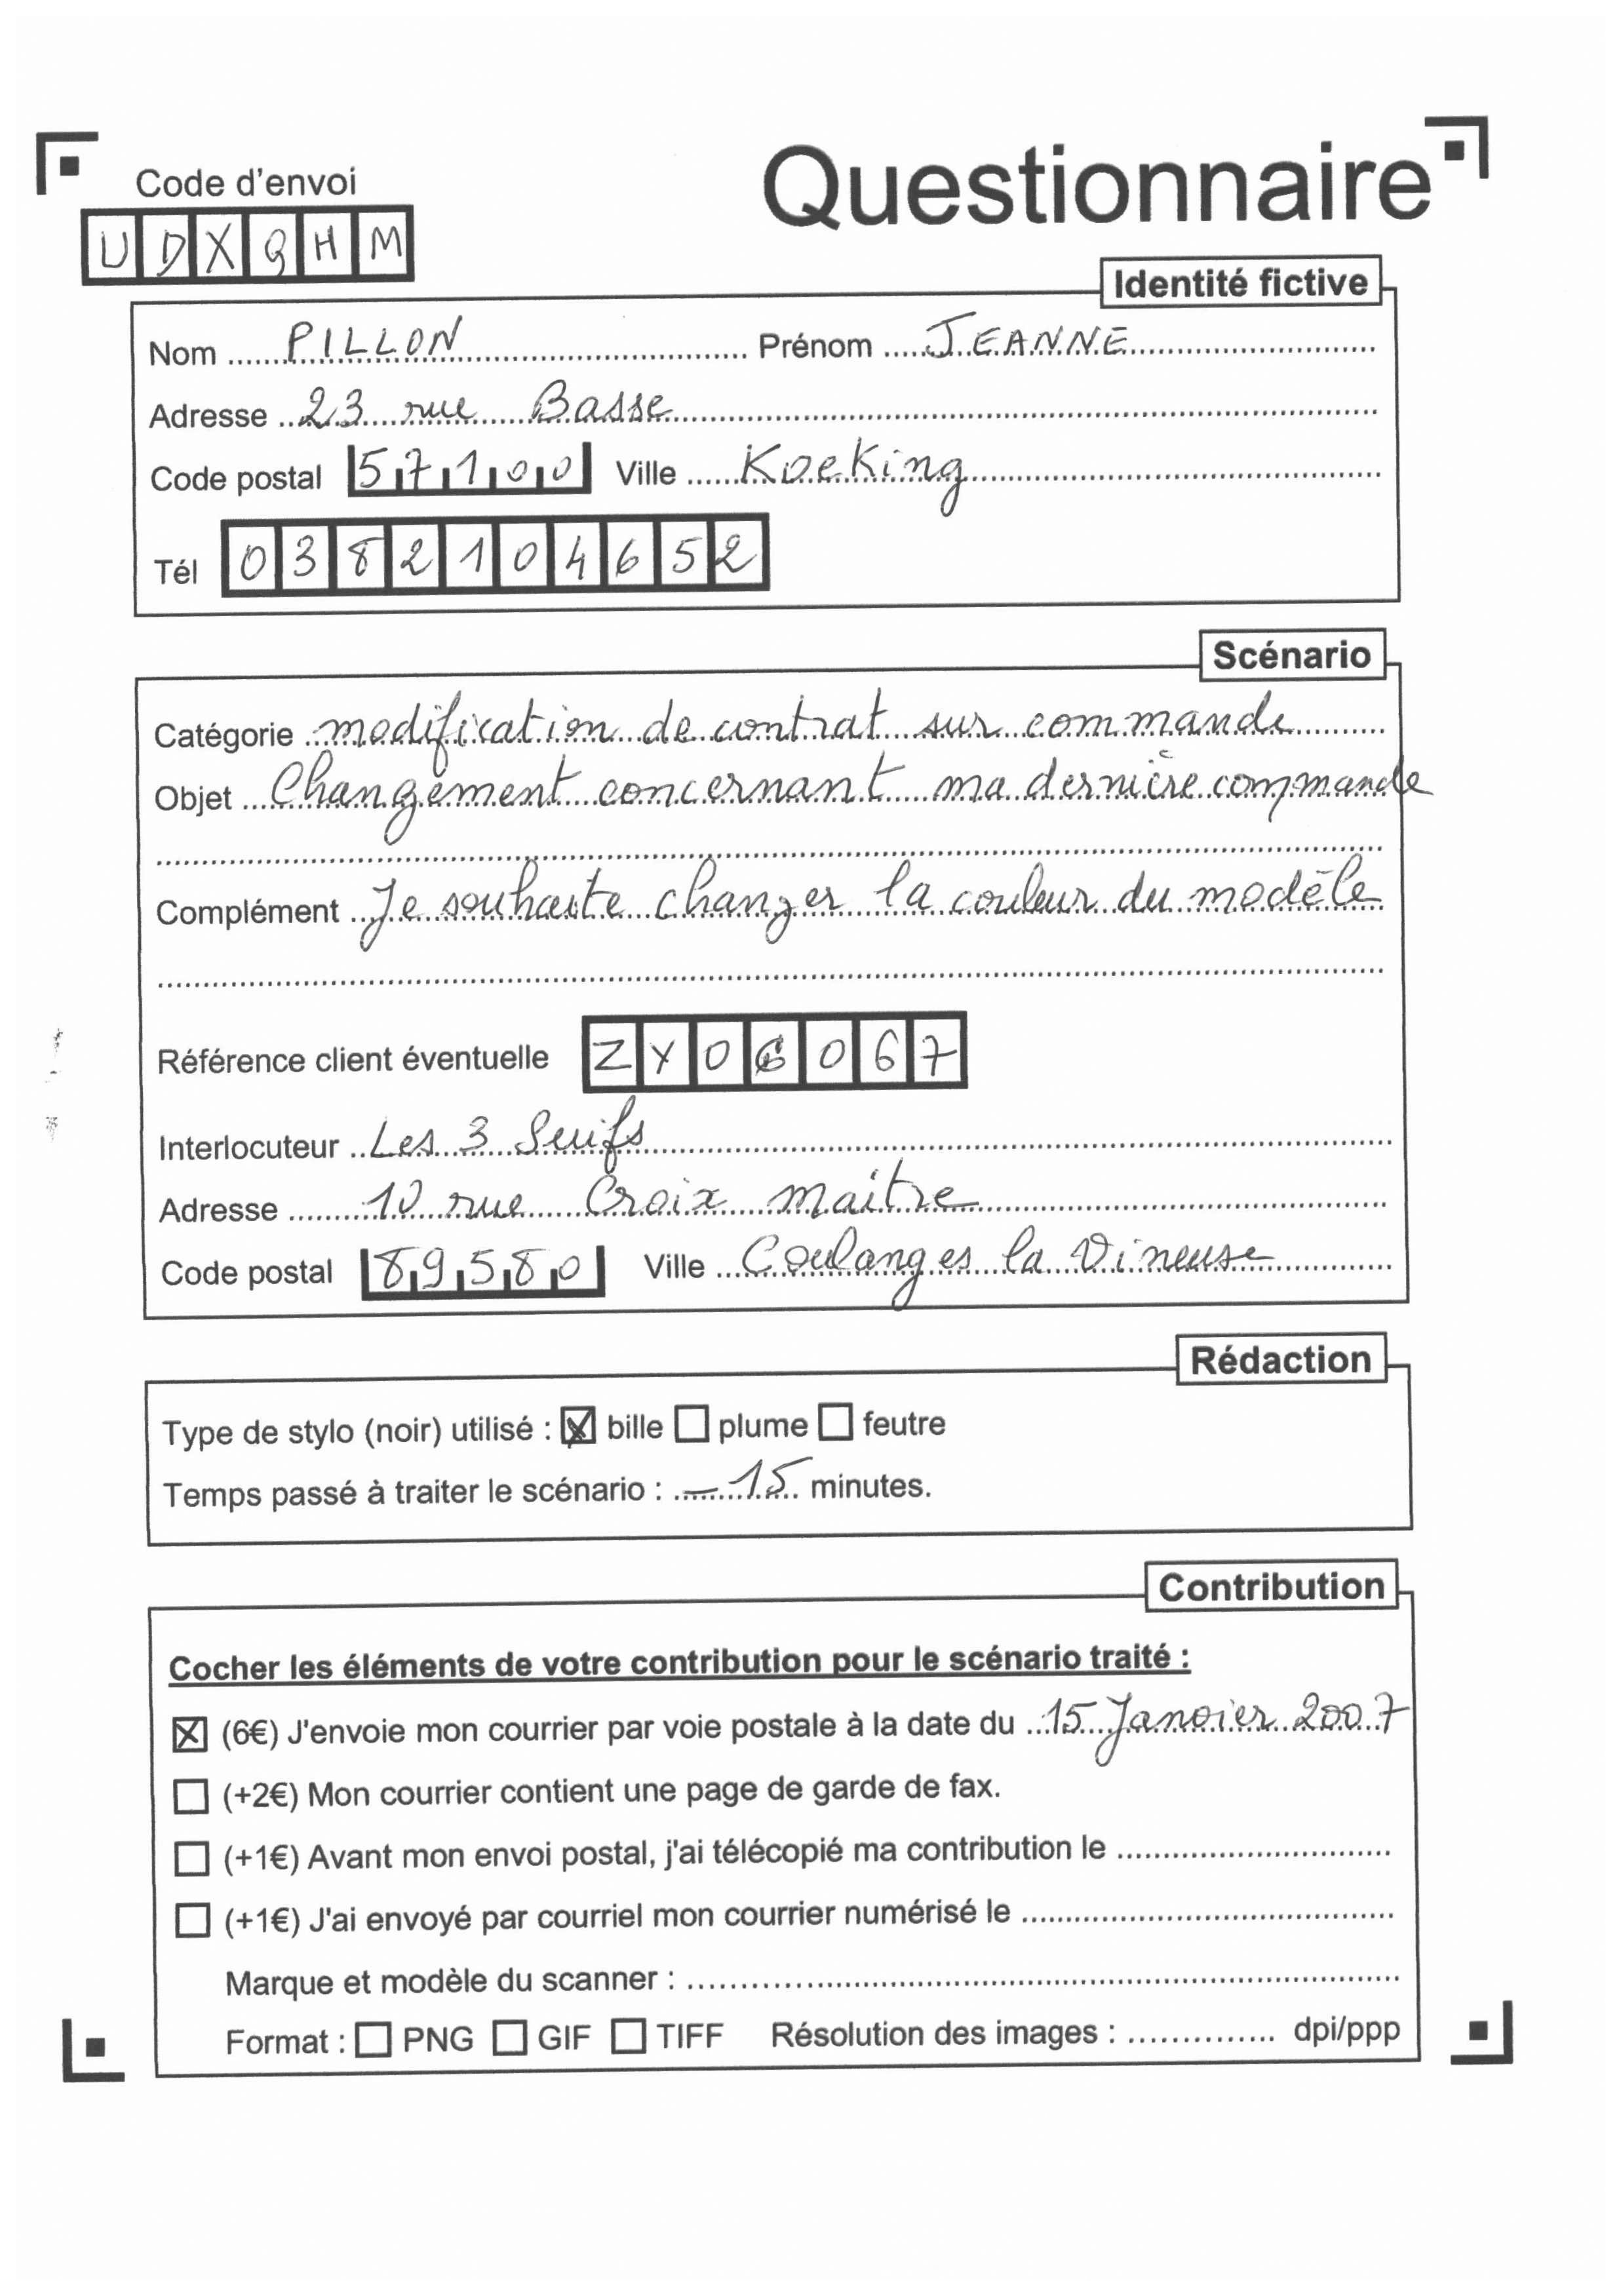 Questionnaire
Code d'envoi
UDXQHM
Identité fictive
Nom PILLON Prénom JEANNE
Adresse 23 rue Basse
Code postal 57100 Ville Koeking
Tél 0382104652
Scénario
Catégorie modification de contrat sur commande
Objet Changement concernant ma dernière commande
Complément Je souhaite changer la couleur du modèle
Référence client éventuelle ZY06067
Interlocuteur Les 3 Suifs
Adresse 10 rue Croix maitre
Code postal 89580 Ville Coulanges la Vineuse
Rédaction
Type de stylo (noir) utilisé : ☒ bille ☐ plume ☐ feutre
Temps passé à traiter le scénario : 15 minutes.
Contribution
Cocher les éléments de votre contribution pour le scénario traité :
☒ (6€) J'envoie mon courrier par voie postale à la date du 15 Janvier 2007
☐ (+2€) Mon courrier contient une page de garde de fax.
☐ (+1€) Avant mon envoi postal, j'ai télécopié ma contribution le
☐ (+1€) J'ai envoyé par courriel mon courrier numérisé le
Marque et modèle du scanner :
Format : ☐ PNG ☐ GIF ☐ TIFF Résolution des images : dpi/ppp